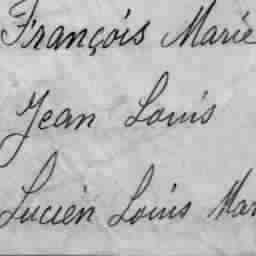 François Marie
Jean Louis
Lucien Louis Mar